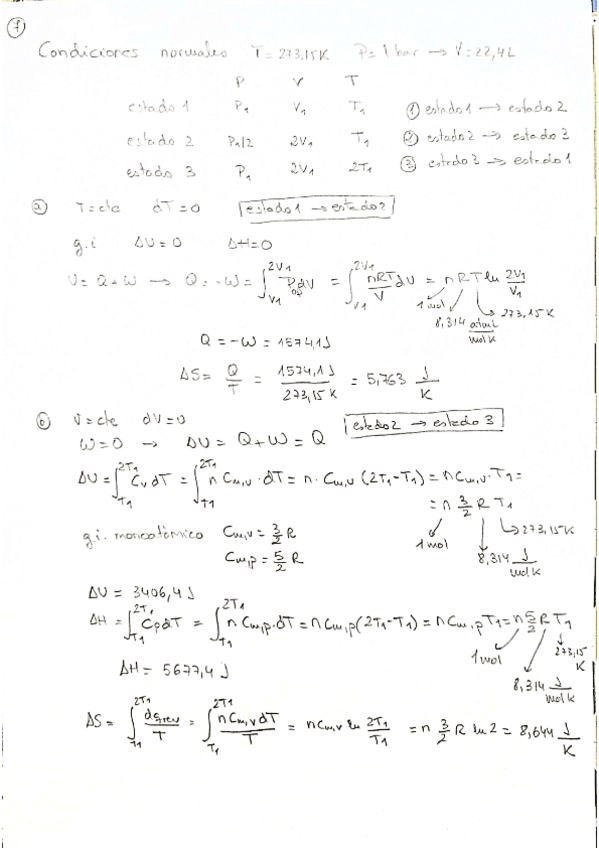 7
Condiciones normales T = 273,15K P = 1 bar → V = 22,4L
P V T
estado 1 P₁ V₁ T₁ ① estado 1 → estado 2
estado 2 P₁/2 2V₁ T₁ ② estado 2 → estado 3
estado 3 P₁ 2V₁ 2T₁ ③ estado 3 → estado 1
ⓐ T=cte dT=0 estado 1 → estado 2
g.i ΔU=0 ΔH=0
U = Q+W → Q = -W = ∫_{V₁}^{2V₁} P_{op} dV = ∫_{V₁}^{2V₁} nRT/V dV = nRT ln 2V₁/V₁
1 mol 8,314 atm L/mol K 273,15 K
Q = -W = 1574,1 J
ΔS = Q/T = 1574,1 J/273,15 K = 5,763 J/K
ⓑ V=cte dV=0 estado 2 → estado 3
W=0 → ΔU = Q+W = Q
ΔU = ∫_{T₁}^{2T₁} C_v dT = ∫_{T₁}^{2T₁} n C_{m,v} · dT = n · C_{m,v} (2T₁-T₁) = n C_{m,v} · T₁ =
= n 3/2 R T₁
1 mol 8,314 J/mol K 273,15 K
g.i. monoatómico C_{m,v} = 3/2 R
C_{m,p} = 5/2 R
ΔU = 3406,4 J
ΔH = ∫_{T₁}^{2T₁} C_p dT = ∫_{T₁}^{2T₁} n C_{m,p} · dT = n C_{m,p} (2T₁-T₁) = n C_{m,p} T₁ = n 5/2 R T₁
1 mol 8,314 J/mol K 273,15 K
ΔH = 5677,4 J
ΔS = ∫_{T₁}^{2T₁} dq_{rev}/T = ∫_{T₁}^{2T₁} n C_{m,v} dT/T = n C_{m,v} ln 2T₁/T₁ = n 3/2 R ln 2 = 8,644 J/K